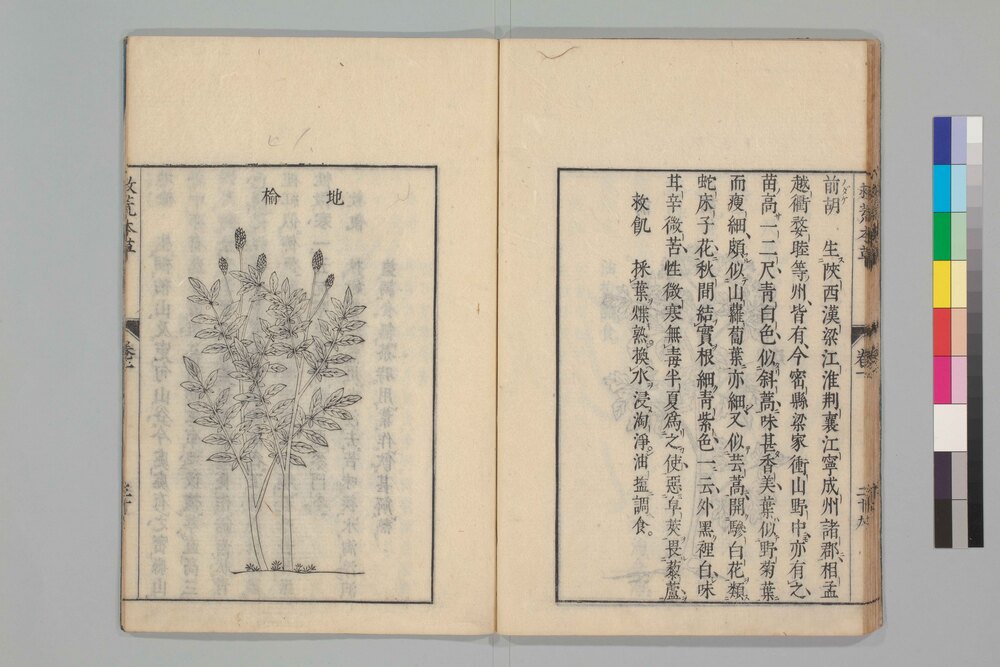 前胡　生陝西漢梁江淮荆襄江寧成州諸郡相孟
越衢婺睦等州皆有今密縣梁家衝山野中亦有之
苗高一二尺青白色似斜蒿味甚香美葉似野菊葉
而瘦細頗似山蘿蔔葉亦細又似芸蒿開黲白花類
蛇床子花秋間結實根細青紫色一云外黑裡白味
甘辛微苦性微寒無毒半夏爲之使惡皁莢畏藜蘆
救飢　採葉煠熟換水浸淘淨油塩調食。
地榆
救荒本草
卷一